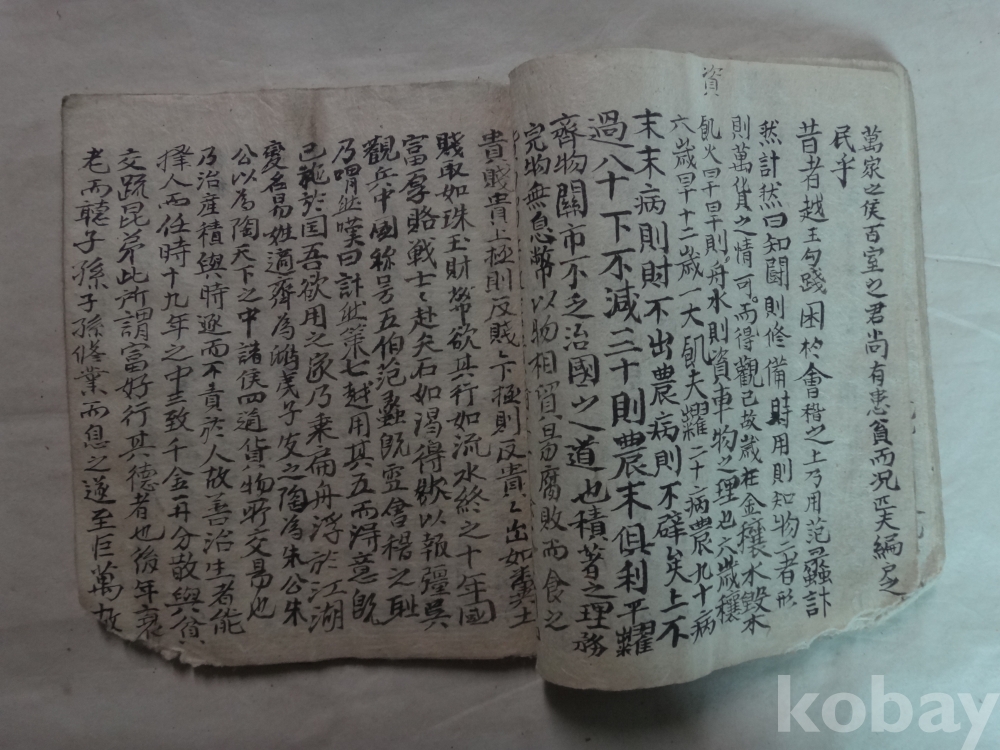 資
萬家之侯百室之君尚有患貧而況匹夫編戶之
民乎
昔者越王句踐困於會稽之上乃用范蠡計
然計然曰知鬪則修備時用則知物二者形
則萬貨之情可而得觀已故歲在金穰水毀木
飢火旱旱則舟水則資車物之理也六歲穰
六歲旱十二歲一大飢夫糶二十病農九十病
末末病則財不出農病則不辟矣上不
過八十下不減三十則農末俱利平糶
齊物關市不乏治國之道也積著之理務
完物無息幣以物相貿易腐敗而食之
貴賤貴上極則反賤賤下極則反貴貴出如糞土
賤取如珠玉財幣欲其行如流水終之十年國
富厚賂戰士士赴矢石如渴得飲以報彊吳
觀兵中國称号五伯范蠡既雪會稽之恥
乃喟然嘆曰計然策七越用其五而得意既
已施於国吾欲用之家乃乘扁舟浮於江湖
變名易姓適齊為鴟夷子皮之陶為朱公朱
公以為陶天下之中諸侯四通貨物所交易也
乃治産積與時逐而不責於人故善治生者能
擇人而任時十九年之中三致千金再分散與貧
交疏昆弟此所謂富好行其德者也後年衰
老而聽子孫子孫修業而息之遂至巨萬故
kobay